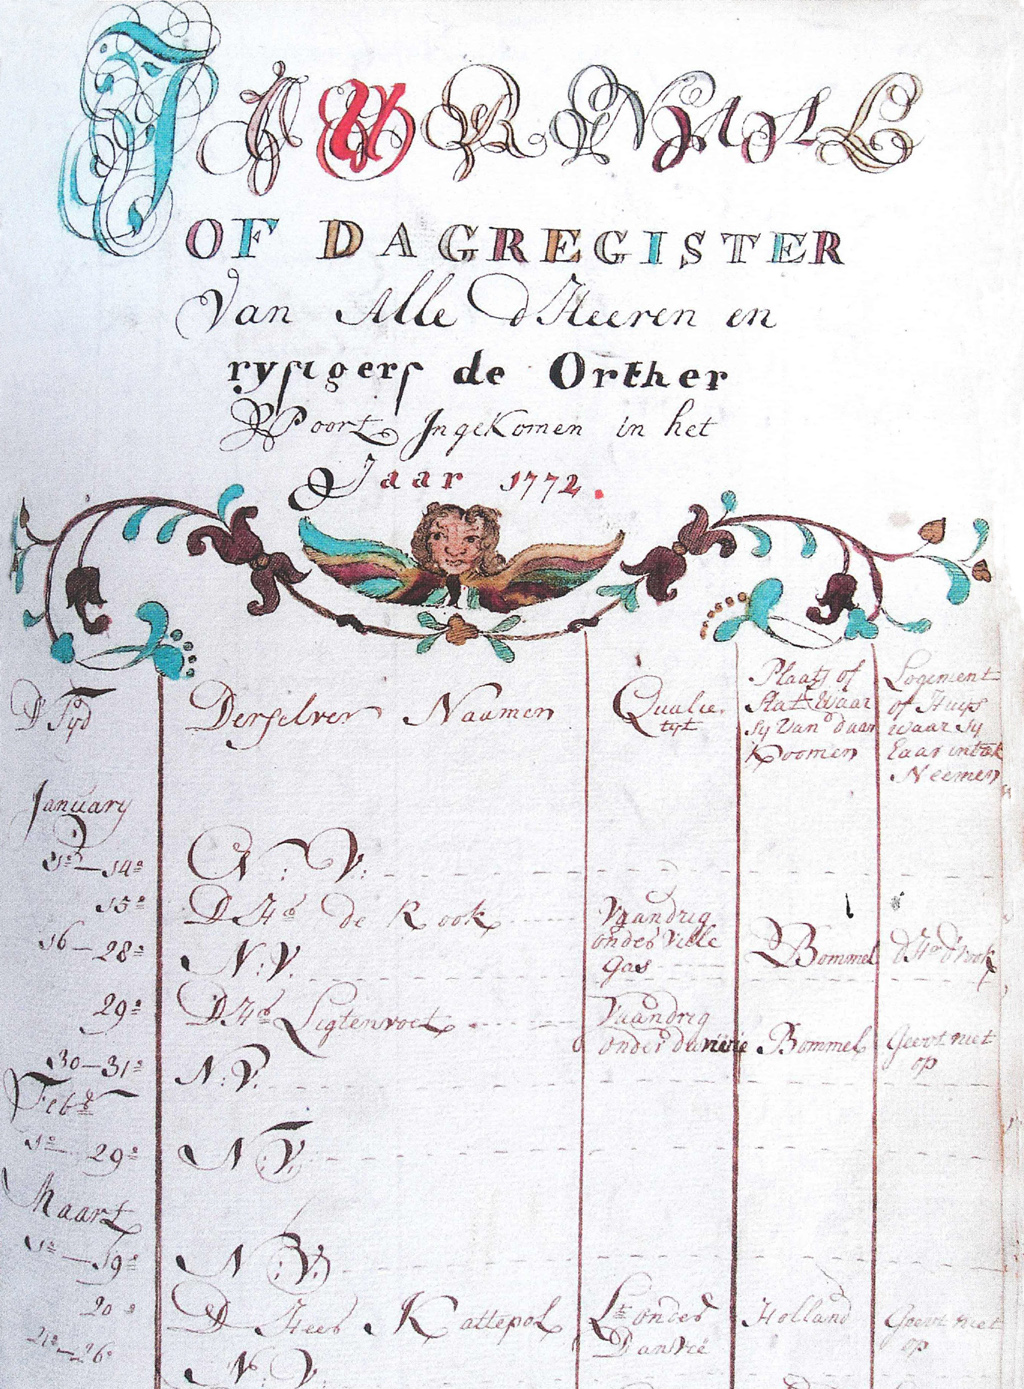 JOURNAAL
OF DAGREGISTER
Van Alle d'Heeren en
rysigers de Orther
Poort Ingekomen in het
Jaar 1772.
D' Tyd
Derselver Naamen
Qualie
tyt
Plaats of
Stat Waar
sy Van daar
Koomen
Logement
of Huys
waar sy
Haar intek
Neemen
January
1º—14º N:V:
15º D Hr de Rook Vaandrig
onder Ville
Gas Bommel d Hr d'rook
16—28º N:V.
29º D Hr Ligtenvoet Vaandrig
onder Bommel Geevt niet
op
30—31º N:V.
Febr
1º—29º N:V.
Maart
1º—19º N:V.
20º D Heer Kattepol Lt onder
Danvré Holland Geevt niet
op
21º—26º N:V: